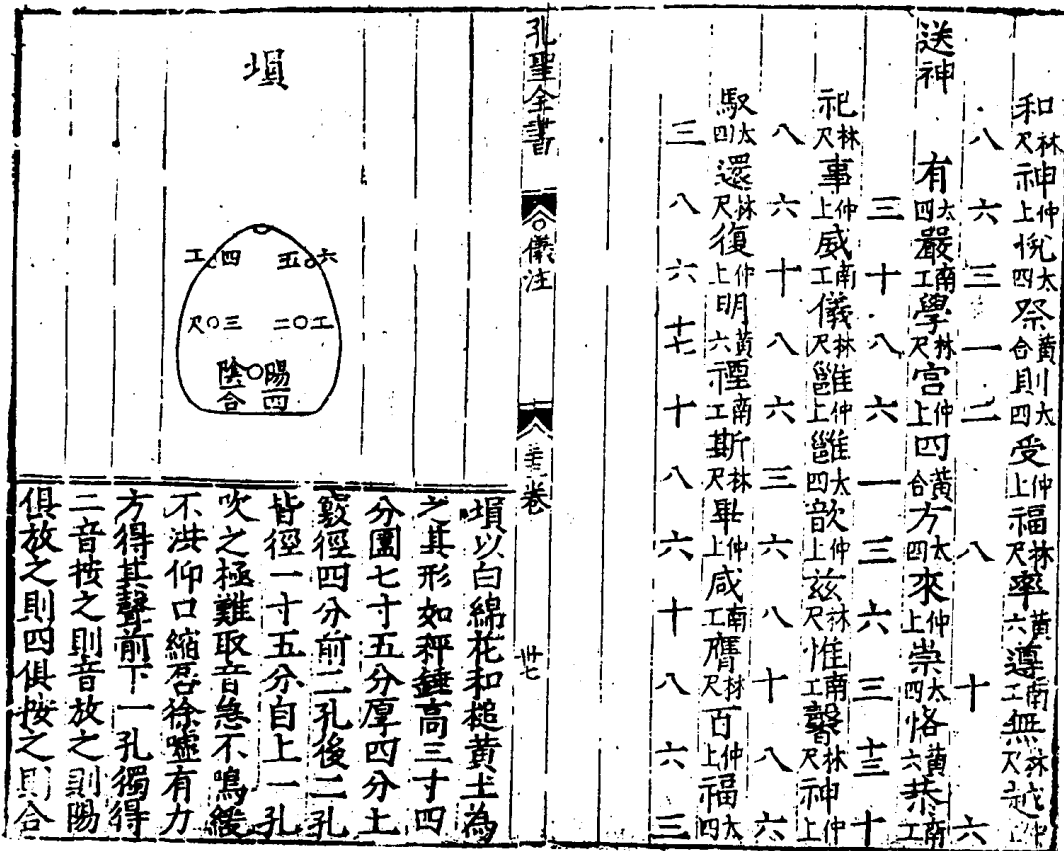 和林尺神仲上悅太四祭黄合則太四受仲上福林尺率黄六遵南工無林尺越仲上
八六三一二八十六
送神 有太四嚴南工學林尺宮仲上四黄合方太四來仲上崇太四恪黄六恭南工
三十八六一三六三十三十
祀林尺事仲上威南工儀林尺雝仲上雝太四歆仲上兹林尺惟南工馨林尺神仲上
八六十八六三六八十八六
馭太四還林尺復仲上明黄六禋南工斯林尺畢仲上咸南工膺林尺百仲上福太四
三八六十七十八六十八六三
孔聖全書 儀注 卷 卅七
塤
工 四 五 六
尺 三 二 工
陽四
陰合
塤以白綿花和槌黄土為
之其形如秤錘高三寸四
分圍七寸五分厚四分土
竅徑四分前二孔後二孔
皆徑一寸五分自上一孔
吹之極難取音急不鳴緩
不洪仰口縮唇徐噓有力
方得其聲前下一孔獨得
二音按之則音放之則陽
俱放之則四俱按之則合